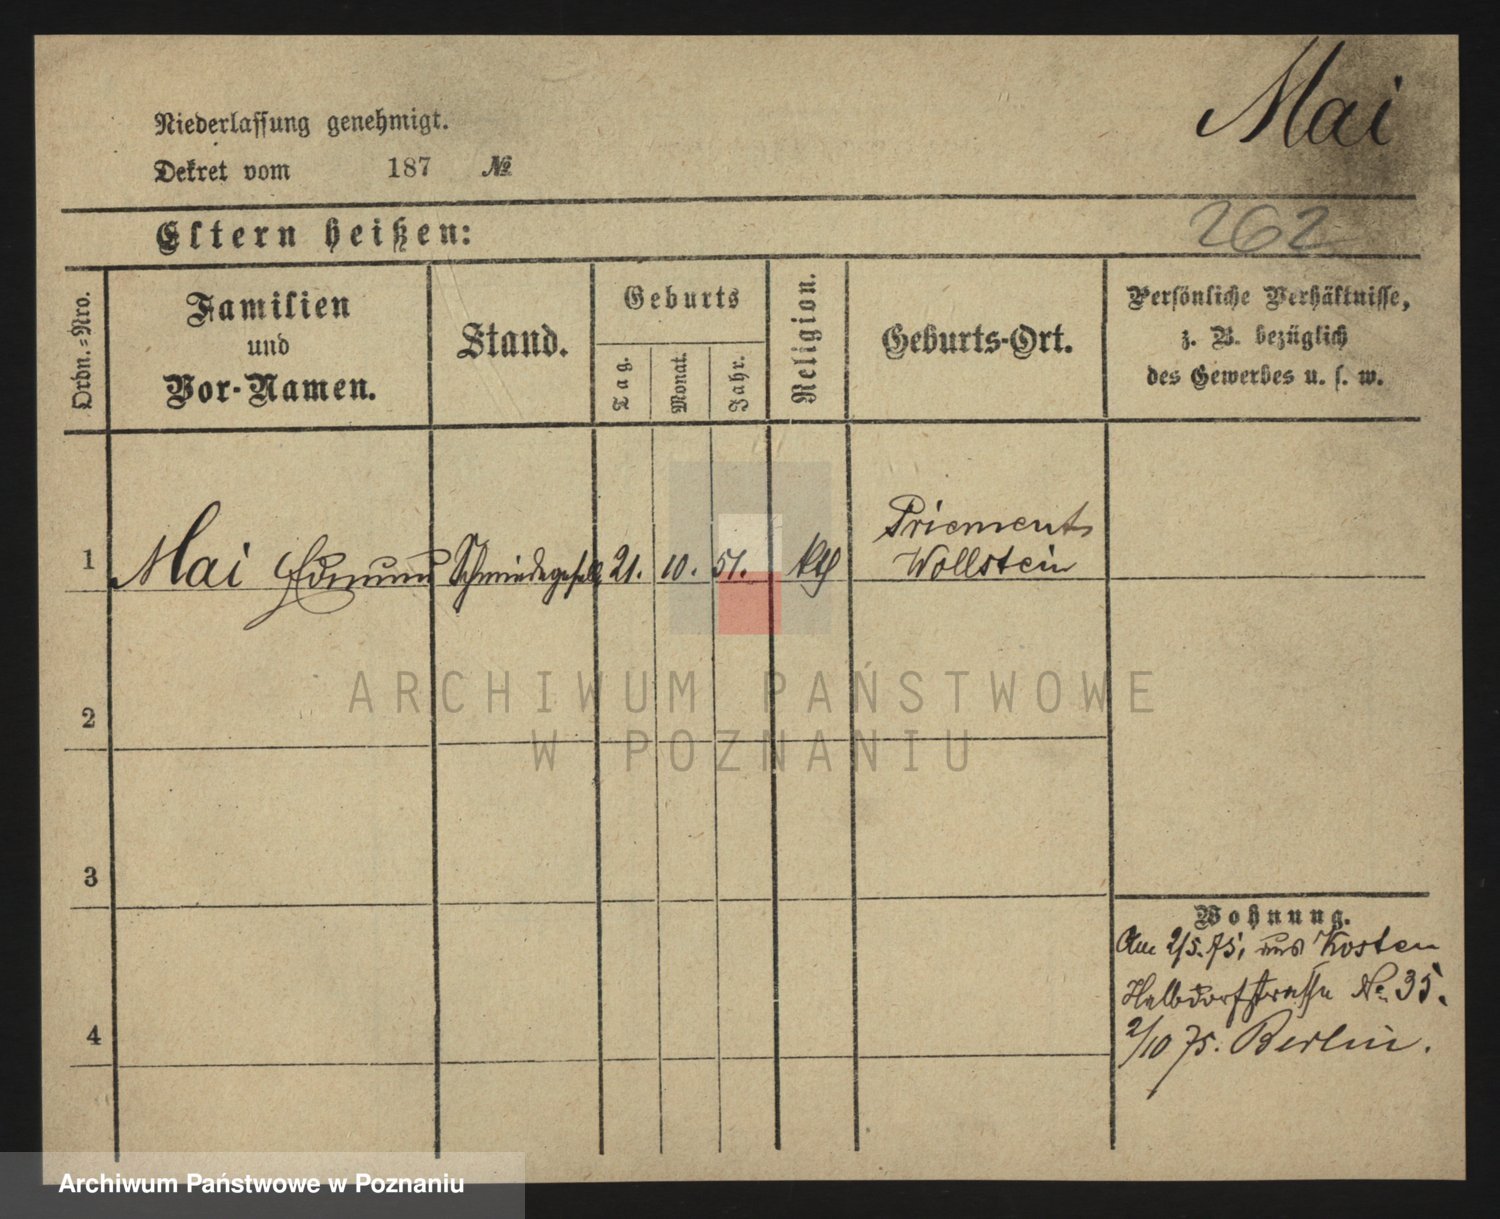 Mai
Niederlassung genehmigt.
Dekret vom 187 №
262
Eltern heißen:
Ordn.-Nro.
Familien
und
Vor-Namen.
Stand.
Geburts
Tag.
Monat.
Jahr.
Religion.
Geburts-Ort.
Persönliche Verhältnisse,
z. B. bezüglich
des Gewerbes u. s. w.
Priement
Wollstein
1 Mai Edmund Schmiedegesell 21. 10. 51. kth
ARCHIWUM PAŃSTWOWE
W POZNANIU
2
3
4
Wohnung.
Am 2/5. 75, aus Kosten
Halbdorfstrasse No 35.
2/10 75. Berlin.
Archiwum Państwowe w Poznaniu